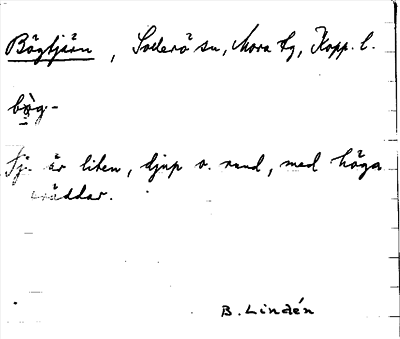 Bögtjärn, Sollerö sn, Mora tg, Kopp. l.
bög-
Sj. är liten, djup o. rund, med höga
bräddar.
B. Lindén